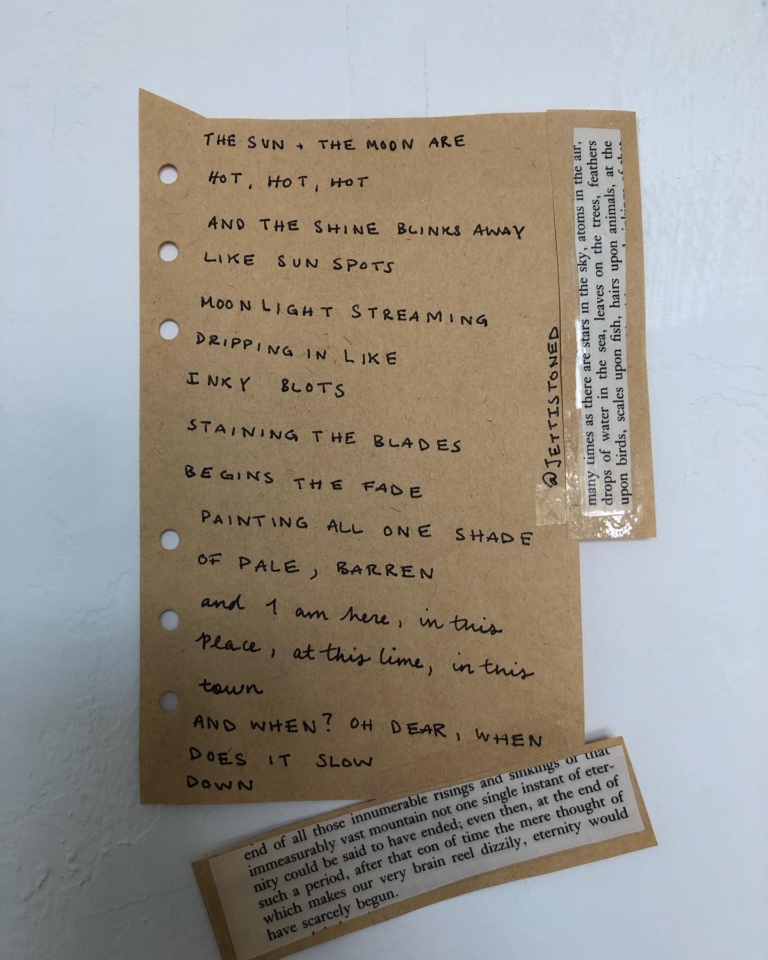 THE SUN + THE MOON ARE
HOT, HOT, HOT
AND THE SHINE BLINKS AWAY
LIKE SUN SPOTS
MOONLIGHT STREAMING
DRIPPING IN LIKE
INKY BLOTS
STAINING THE BLADES
BEGINS THE FADE
PAINTING ALL ONE SHADE
OF PALE, BARREN
and I am here, in this
place, at this lime, in this
town
AND WHEN? OH DEAR, WHEN
DOES IT SLOW
DOWN
@JETTISTONED
many times as there are stars in the sky, atoms in the air,
drops of water in the sea, leaves on the trees, feathers
upon birds, scales upon fish, hairs upon animals, at the
end of all those innumerable risings and sinkings of that
immeasurably vast mountain not one single instant of eter-
nity could be said to have ended; even then, at the end of
such a period, after that eon of time the mere thought of
which makes our very brain reel dizzily, eternity would
have scarcely begun.